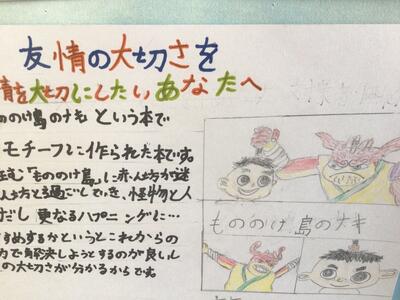 友情の大切さを
情を大切にしたいあなたへ
もののけ島のナキ という本で
モチーフに作られた本です。
む「もののけ島」に赤ん坊が迷
ん坊と過ごしていき、怪物と人
だし 更なるハプニングに…
すめするかというとこれからの
力で解決しようとするのが良しい
の大切さが分かるからです
もののけ 島のナキ